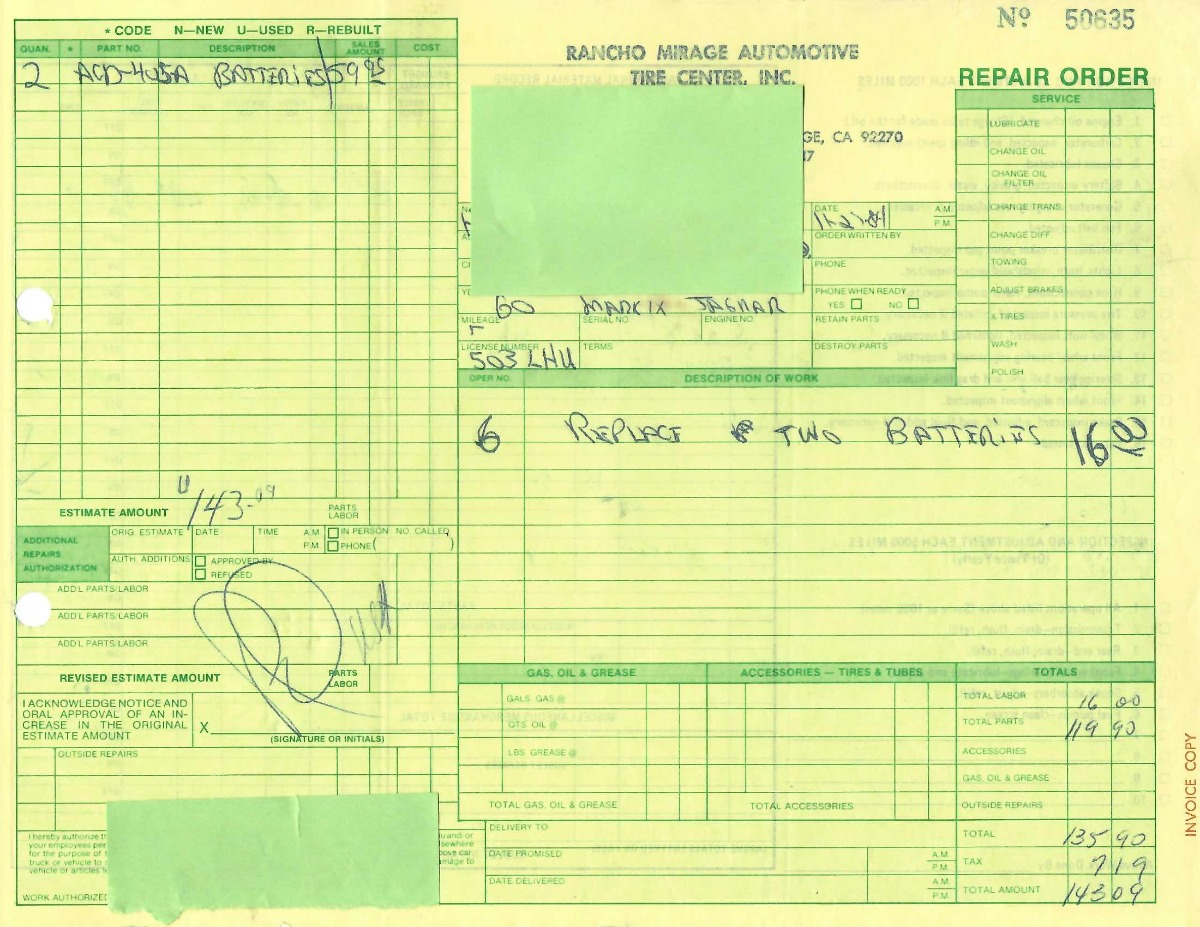 Nº 50635
* CODE N—NEW U—USED R—REBUILT
QUAN. * PART NO. DESCRIPTION SALES AMOUNT COST
2 BATTERIES 59 95
RANCHO MIRAGE AUTOMOTIVE
TIRE CENTER, INC.
GE, CA 92270
REPAIR ORDER
SERVICE
LUBRICATE
CHANGE OIL
CHANGE OIL FILTER
CHANGE TRANS.
CHANGE DIFF.
TOWING
ADJUST BRAKES
X TIRES
WASH
POLISH
DATE A.M. P.M.
ORDER WRITTEN BY
PHONE
PHONE WHEN READY
YES NO
60 MARK IX JAGUAR
MILEAGE SERIAL NO. ENGINE NO. RETAIN PARTS
LICENSE NUMBER TERMS DESTROY PARTS
503 LHU
OPER NO. DESCRIPTION OF WORK
6 REPLACE TWO BATTERIES 16 00
ESTIMATE AMOUNT 143.09 PARTS LABOR
ADDITIONAL REPAIRS AUTHORIZATION
ORIG. ESTIMATE DATE TIME A.M. P.M. IN PERSON NO. CALLED
PHONE ( )
AUTH. ADDITIONS APPROVED BY
REFUSED
ADD'L PARTS/LABOR
ADD'L PARTS/LABOR
ADD'L PARTS/LABOR
REVISED ESTIMATE AMOUNT PARTS LABOR
I ACKNOWLEDGE NOTICE AND
ORAL APPROVAL OF AN IN-
CREASE IN THE ORIGINAL
ESTIMATE AMOUNT
X
(SIGNATURE OR INITIALS)
OUTSIDE REPAIRS
GAS, OIL & GREASE ACCESSORIES — TIRES & TUBES TOTALS
GALS. GAS @
QTS. OIL @
LBS. GREASE @
TOTAL GAS, OIL & GREASE TOTAL ACCESSORIES
TOTAL LABOR 16 00
TOTAL PARTS 119 90
ACCESSORIES
GAS, OIL & GREASE
OUTSIDE REPAIRS
TOTAL 135 90
TAX 7 19
TOTAL AMOUNT 143 09
DELIVERY TO
DATE PROMISED A.M. P.M.
DATE DELIVERED A.M. P.M.
I hereby authorize
your employees
for the purpose of
truck or vehicle to
vehicle or articles
WORK AUTHORIZED
INVOICE COPY